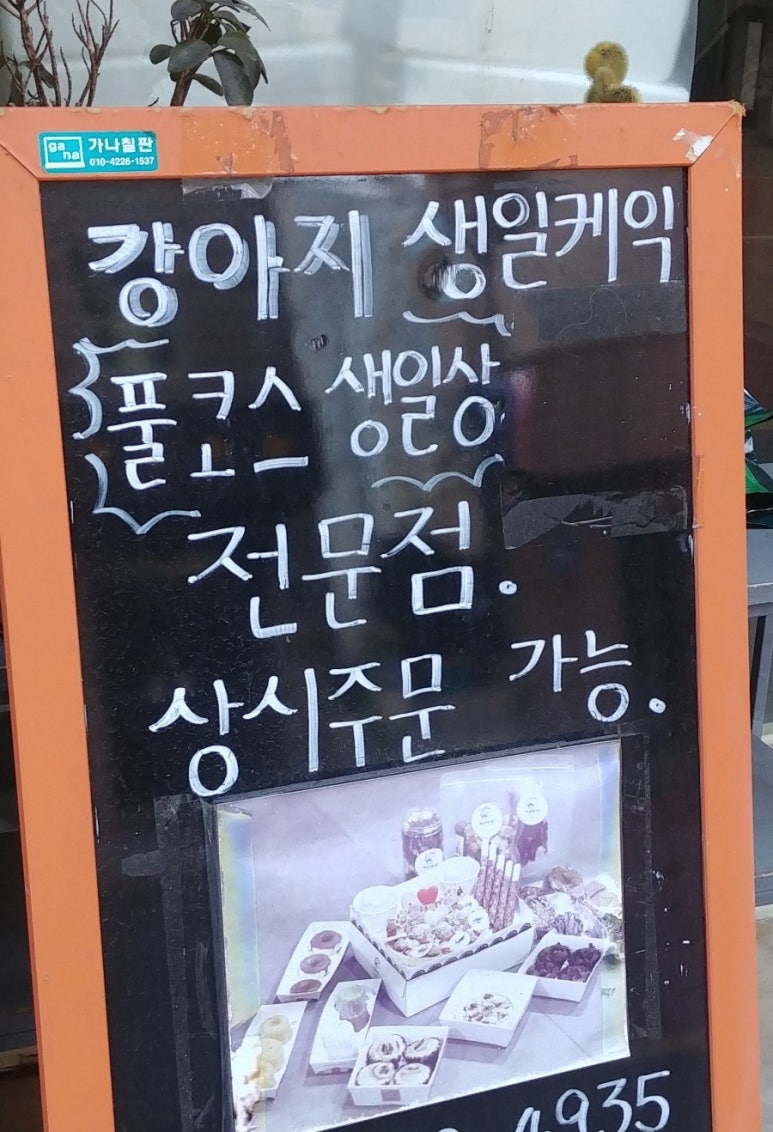 ga
na
가나칠판
010-4226-1537
강아지 생일케익
풀코스 생일상
전문점.
상시주문 가능.
4935